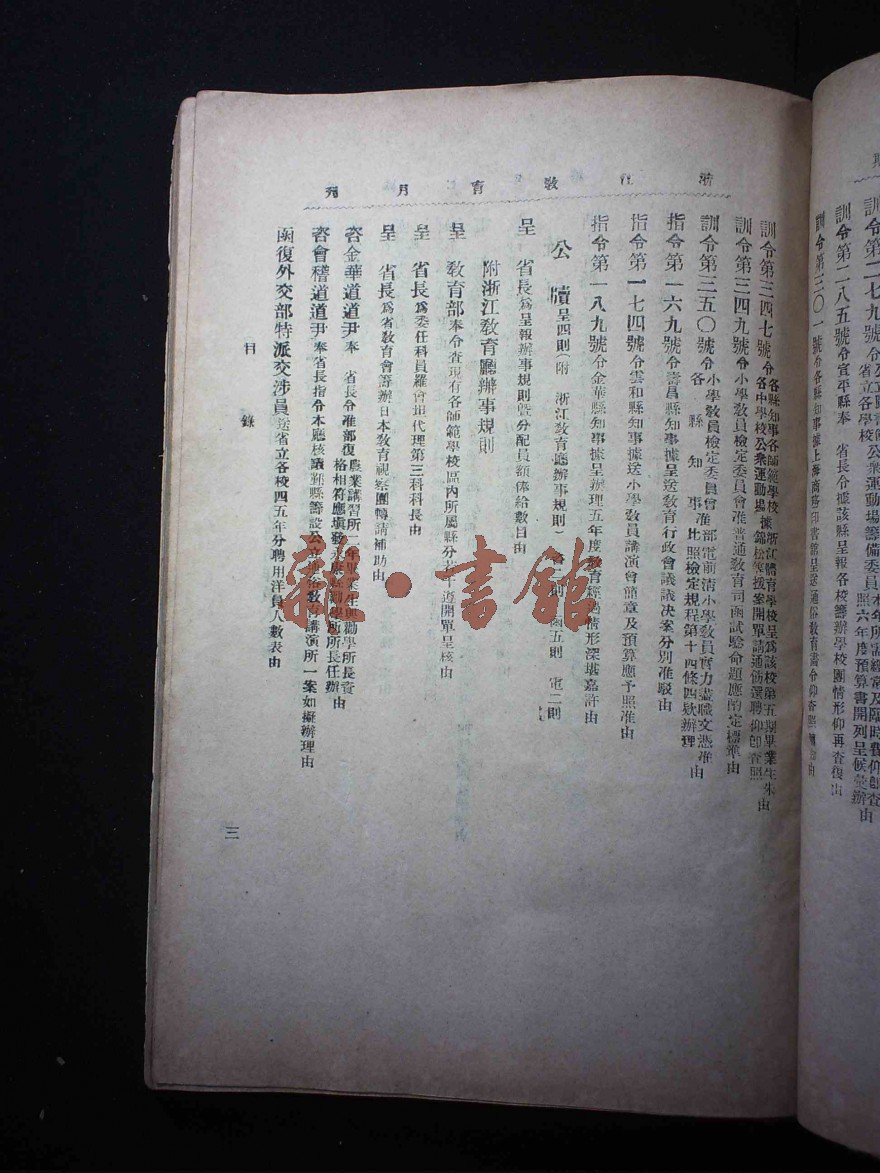 訓令第二八五號令宣平縣奉 省長令據該縣呈報各校籌辦學校園情形仰再查復由
訓令第三〇一號令各縣知事據上海商務印書館呈送通俗教育畫令仰查照
浙江教育月刊
訓令第三四七號令各縣知事各師範學校各中學校公衆運動場 據浙江體育學校呈爲該校第五期畢業生朱錦松等援案開單請通飭選聘仰卽查照由
訓令第三四九號令小學教員檢定委員會准普通教育司函試驗命題應酌定標準由
訓令第三五〇號令小學教員檢定委員會各縣知事 准部電前清小學教員實力盡職文憑准比照檢定規程第十四條四欵辦理由
指令第一六九號令壽昌縣知事據呈送教育行政會議議決案分別准駁由
指令第一七四號令雲和縣知事據送小學教員講演會簡章及預算應予照准由
指令第一八九號令金華縣知事據呈辦理五年度教育經過情形深堪嘉許由
公牘 呈四則(附 浙江教育廳辦事規則) 函五則 電二則
呈 省長爲呈報辦事規則曁分配員額俸給數目由
附浙江教育廳辦事規則
呈 教育部奉令查現有各師範學校區內所屬縣分 遵開單呈核由
呈 省長爲委任科員羅會 代理第三科科長由
呈 省長爲省教育會籌辦日本教育視察團轉請補助由
咨金華道道尹奉 省長令准部復農業講習所一年畢業生與勸學所長資格相符應塡發永康縣勸學所所長任辦由
咨會稽道道尹奉省長指令本廳核議鄞縣籌設公立通俗教育講演所一案如擬辦理由
函復外交部特派交涉員送省立各校四五年分聘用洋員人數表由
目 錄
三